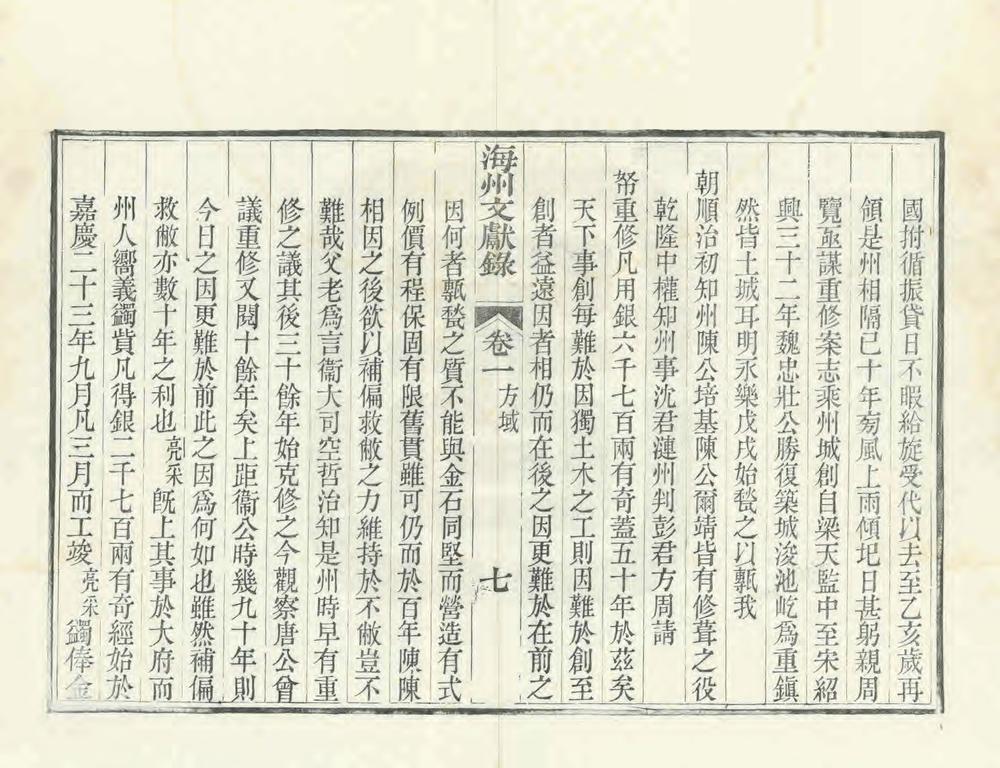 國拊循振貸日不暇給旋受代以去至乙亥歲再
領是州相隔已十年菊風上雨傾圯日甚躬親周
覽亟謀重修案志乘州城創自梁天監中至宋紹
興三十二年魏忠壯公勝復築城浚池屹爲重鎭
然皆土城耳明永樂戊戌始甃之以甎我
朝順治初知州陳公培基陳公爾靖皆有修葺之役
乾隆中權知州事沈君漣州判彭君方周請
帑重修凡用銀六千七百兩有奇蓋五十年於茲矣
天下事創每難於因獨土木之工則因難於創至
創者益遠因者相仍而在後之因更難於在前之
海州文獻錄 卷一 方域 七
因何者甎甃之質不能與金石同堅而營造有式
例價有程保固有限舊貫雖可仍而於百年陳陳
相因之後欲以補偏救敝之力維持於不敝豈不
難哉父老爲言衞大司空哲治知是州時早有重
修之議其後三十餘年始克修之今觀察唐公曾
議重修又閱十餘年矣上距衞公時幾九十年則
今日之因更難於前此之因爲何如也雖然補偏
救敝亦數十年之利也亮采旣上其事於大府而
州人嚮義蠲貲凡得銀二千七百兩有奇經始於
嘉慶二十三年九月凡三月而工竣亮采蠲俸金